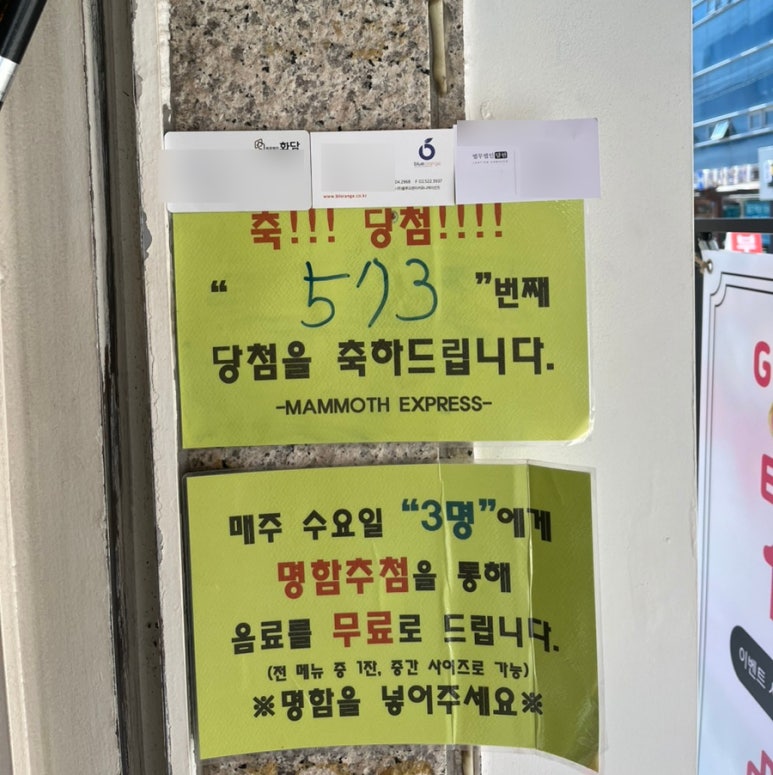 화담
blueorange
04.2968 F 02.522.3937
www.blorange.co.kr
법무법인
축!!! 당첨!!!!
“ 573 ”번째
당첨을 축하드립니다.
-MAMMOTH EXPRESS-
매주 수요일 “3명”에게
명함추첨을 통해
음료를 무료로 드립니다.
(전 메뉴 중 1잔, 중간 사이즈로 가능)
※명함을 넣어주세요※
G
이벤트